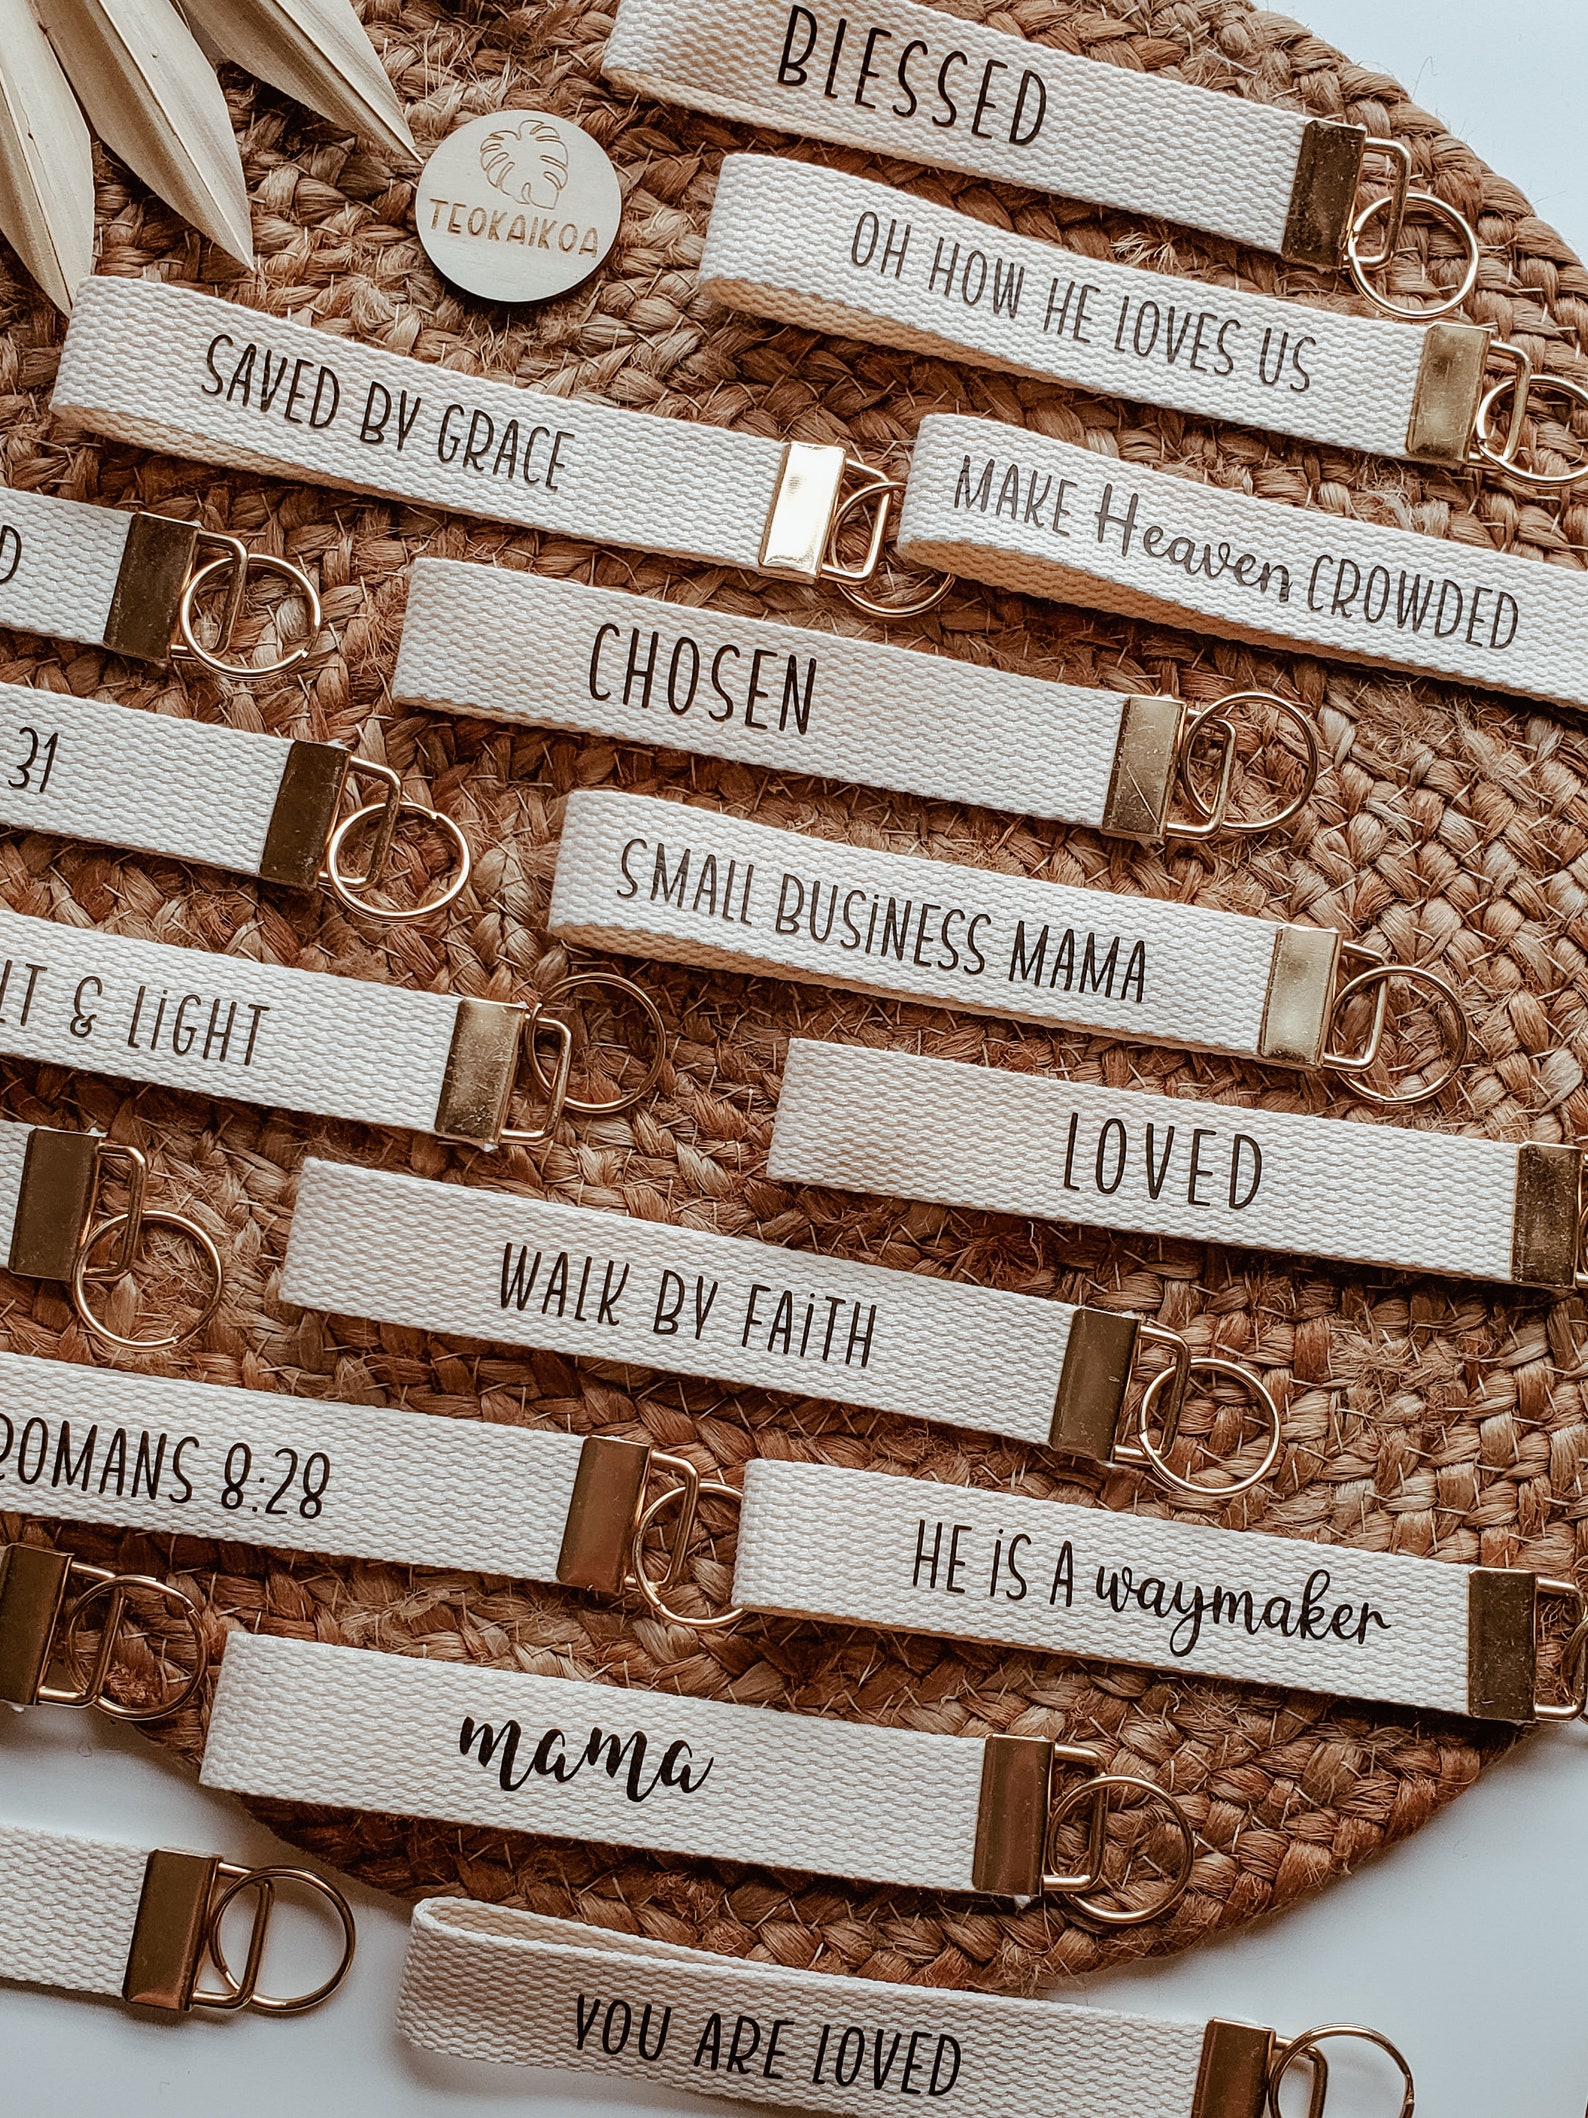 BLESSED
TEOKAIKOA
OH HOW HE LOVES US
SAVED BY GRACE
MAKE Heaven CROWDED
D
CHOSEN
31
SMALL BUSINESS MAMA
LT & LIGHT
LOVED
WALK BY FAITH
ROMANS 8:28
HE IS A waymaker
mama
YOU ARE LOVED